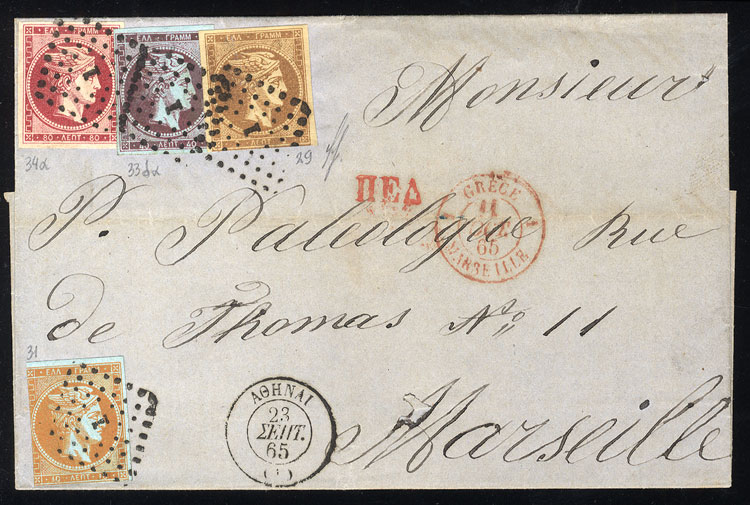 ΕΛΛ ΓΡΑΜΜ
80 ΛΕΠΤ 80
34α
ΕΛΛ ΓΡΑΜΜ
40 ΛΕΠΤ 40
33δα
ΕΛΛ ΓΡΑΜΜ
29
Monsieur
ΠΕΔ
GRÈCE
11
65
MARSEILLE
P. Paleologue Rue
de Thomas No, 11
Marseille
31
ΕΛΛ ΓΡΑΜΜ
10 ΛΕΠΤ 10
1
ΑΘΗΝΑΙ
23
ΣΕΠΤ.
65
(1)